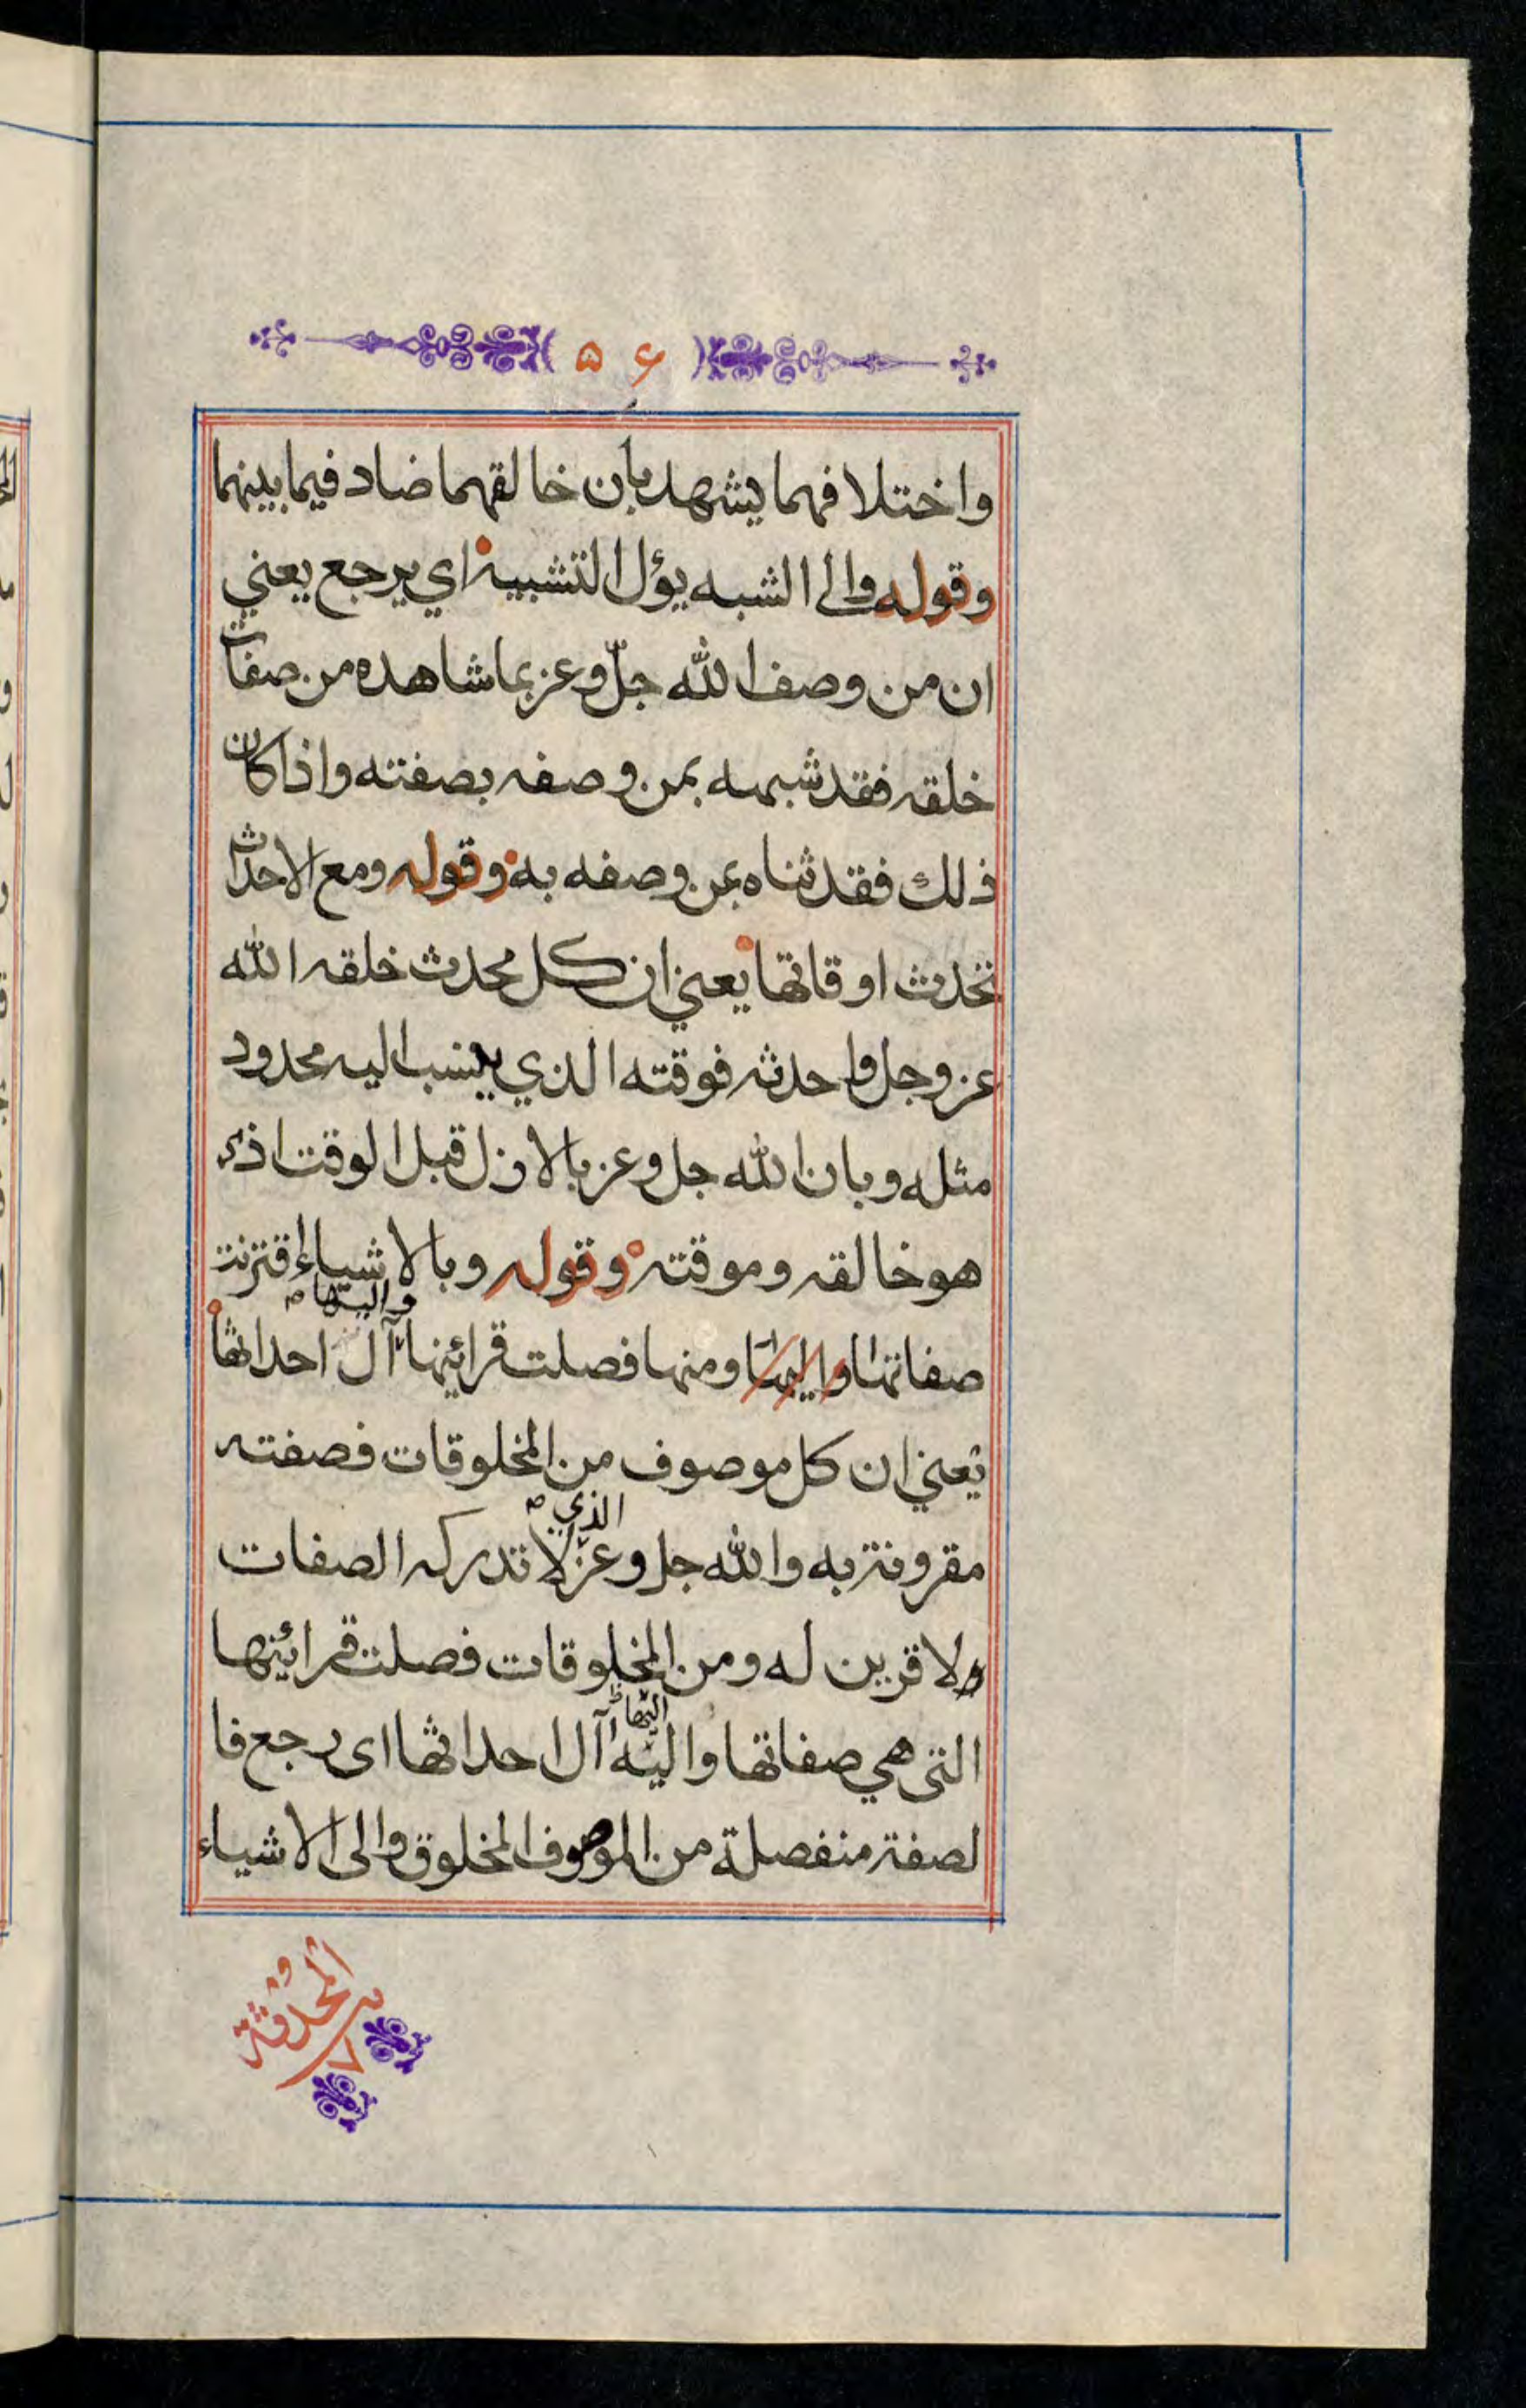 ۵۶
واختلافهما يشهد بأن خالقهما ضاد فيما بينهما
وقوله والى الشبه يؤل التشبيه اي يرجع يعني
ان من وصف الله جلّ وعز بما شاهده من صفات
خلقه فقد شبهه بمن وصفه بصفته واذا كان
ذلك فقد ثناه بمن وصفه به وقوله ومع الاحداث
تحدث اوقاتها يعني ان كل محدث خلقه الله
عز وجل واحدثه فوقته الذي ينسب اليه محدود
مثله وبان الله جل وعز بالازل قبل الوقت اذ
هو خالقه وموقته وقوله وبالاشياء اقترنت
صفاتها ومنها فصلت قرائينها واليها آل احداثها
يعني ان كل موصوف من المخلوقات فصفته
مقرونة به والله جل وعز الذي لا تدركه الصفات
ولا قرين له ومن المخلوقات فصلت قرائينها
التي هي صفاتها واليه اليها آل احداثها اى رجع فا
لصفة منفصلة من الموصوف المخلوق والى الاشياء
المحدثة